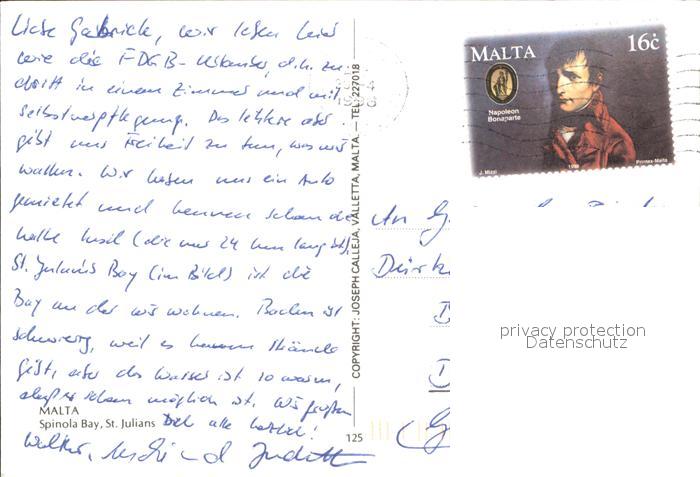 Liebe Gabriele, wir leben hier
wie die FDGB-Urlauber, d.h. zu
dritt in einem Zimmer und mit
Selbstverpflegung. Das letztere aber
gibt uns Freiheit zu tun, was wir
wollen. Wir haben uns ein Auto
gemietet und kennen schon die
halbe Insel (die nur 27 km lang ist).
St. Julian's Bay (im Bild) ist die
Bay an der wir wohnen. Baden ist
schwierig, weil es kaum Strände
gibt, aber das Wasser ist so warm,
daß es schon möglich ist. Wir grüßen
Dich alle herzlich!
und Judith
MALTA
Spinola Bay, St. Julians
125
COPYRIGHT: JOSEPH CALLEJA, VALLETTA, MALTA. — TEL: 227018
MALTA 16c
Napoleon
Bonaparte
J. Mizzi
Printex-Malta
An
privacy protection
Datenschutz